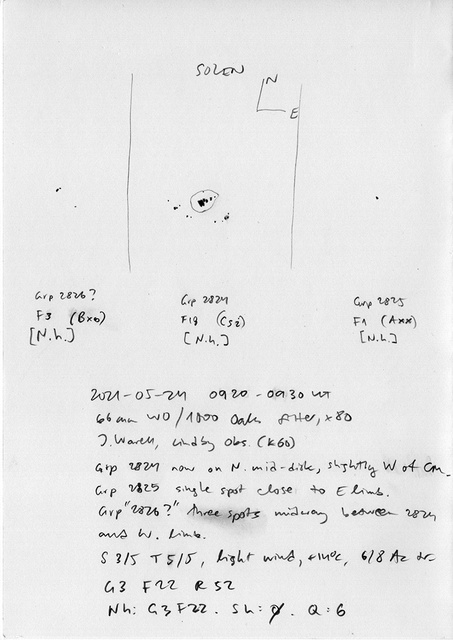 SOLEN
N
E
Grp 2826?
F3 (Bxo)
[N.h.]
Grp 2824
F18 (Cso)
[N.h.]
Grp 2825
F1 (Axx)
[N.h.]
2021-05-24 0920-0930 UT
66 mm WO/1000 Oaks filter, x80
J. Warell, Lindby Obs. (K60)
Grp 2824 now on N. mid-disk, slightly W of CM.
Grp 2825 single spot close to E limb.
Grp "2826?" three spots midway between 2824
and W. limb.
S 3/5 T 5/5, light wind, +14°C, 6/8 Ac
G3 F22 R52
Nh: G3F22. Sh: 0. Q: 6